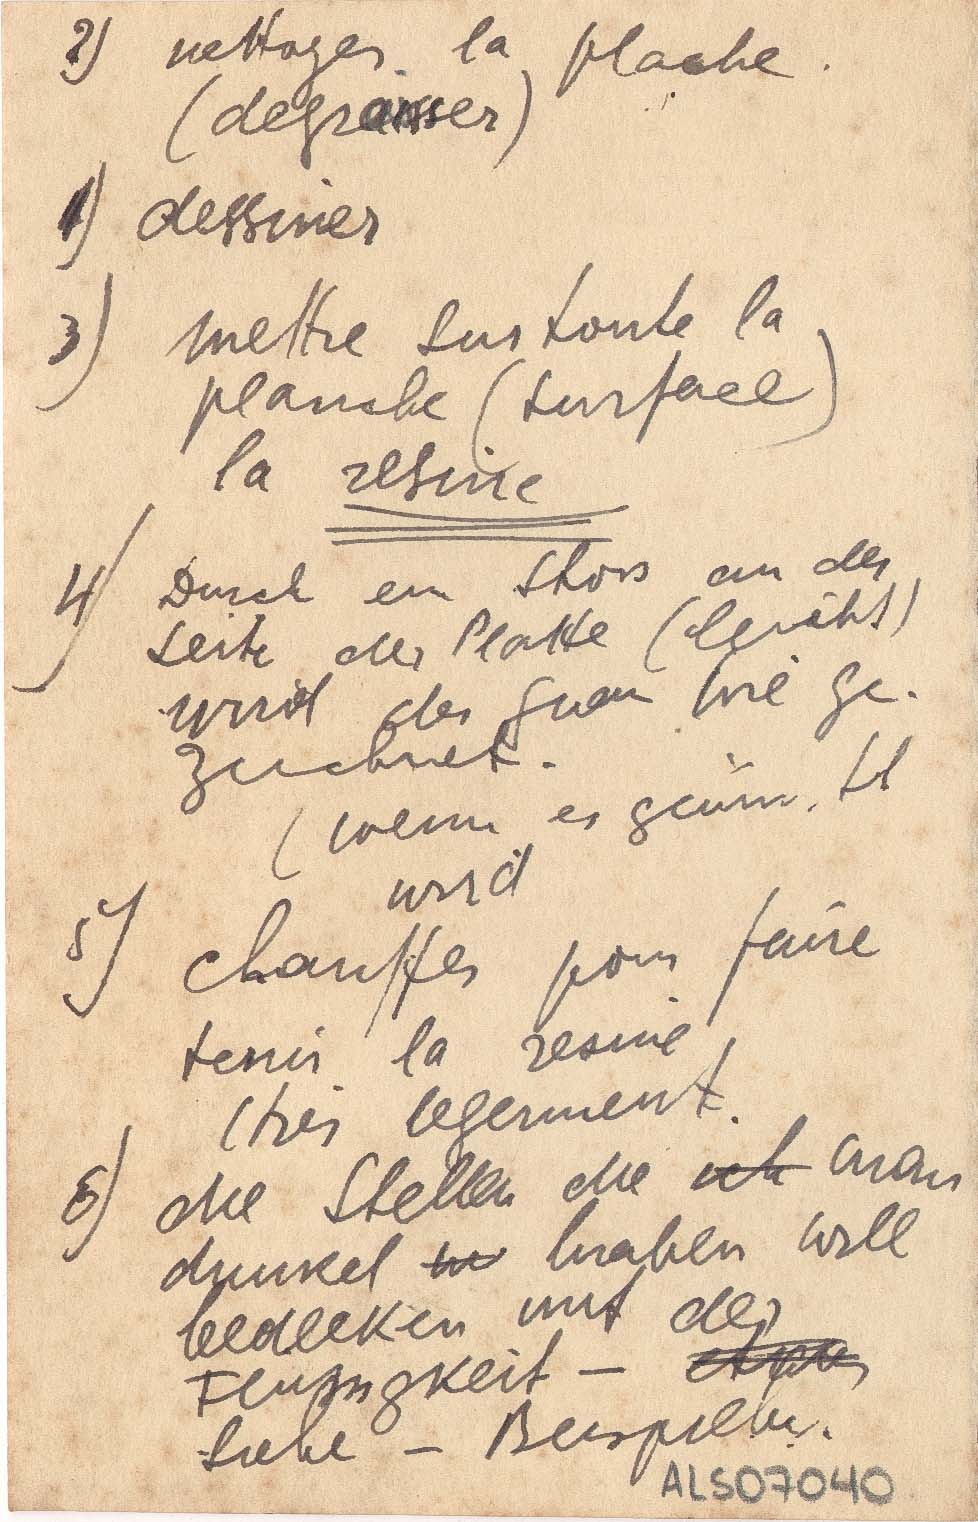 2) nettoyer la plache.
(degraisser)
1) dessiner
3) mettre sur toute la
planche (surface)
la resine
4) Durch ein Stoss an der
Seite der Platte (leicht)
wird das grau wie ge-
zeichnet.
(wenn es
wird
5) chauffer pour faire
tenir la resine
(très legerment.
6) die Stellen die ich man
dunkel haben will
bedecken mit der
Flussigkeit –
Siehe – Beispiele.
ALS07040